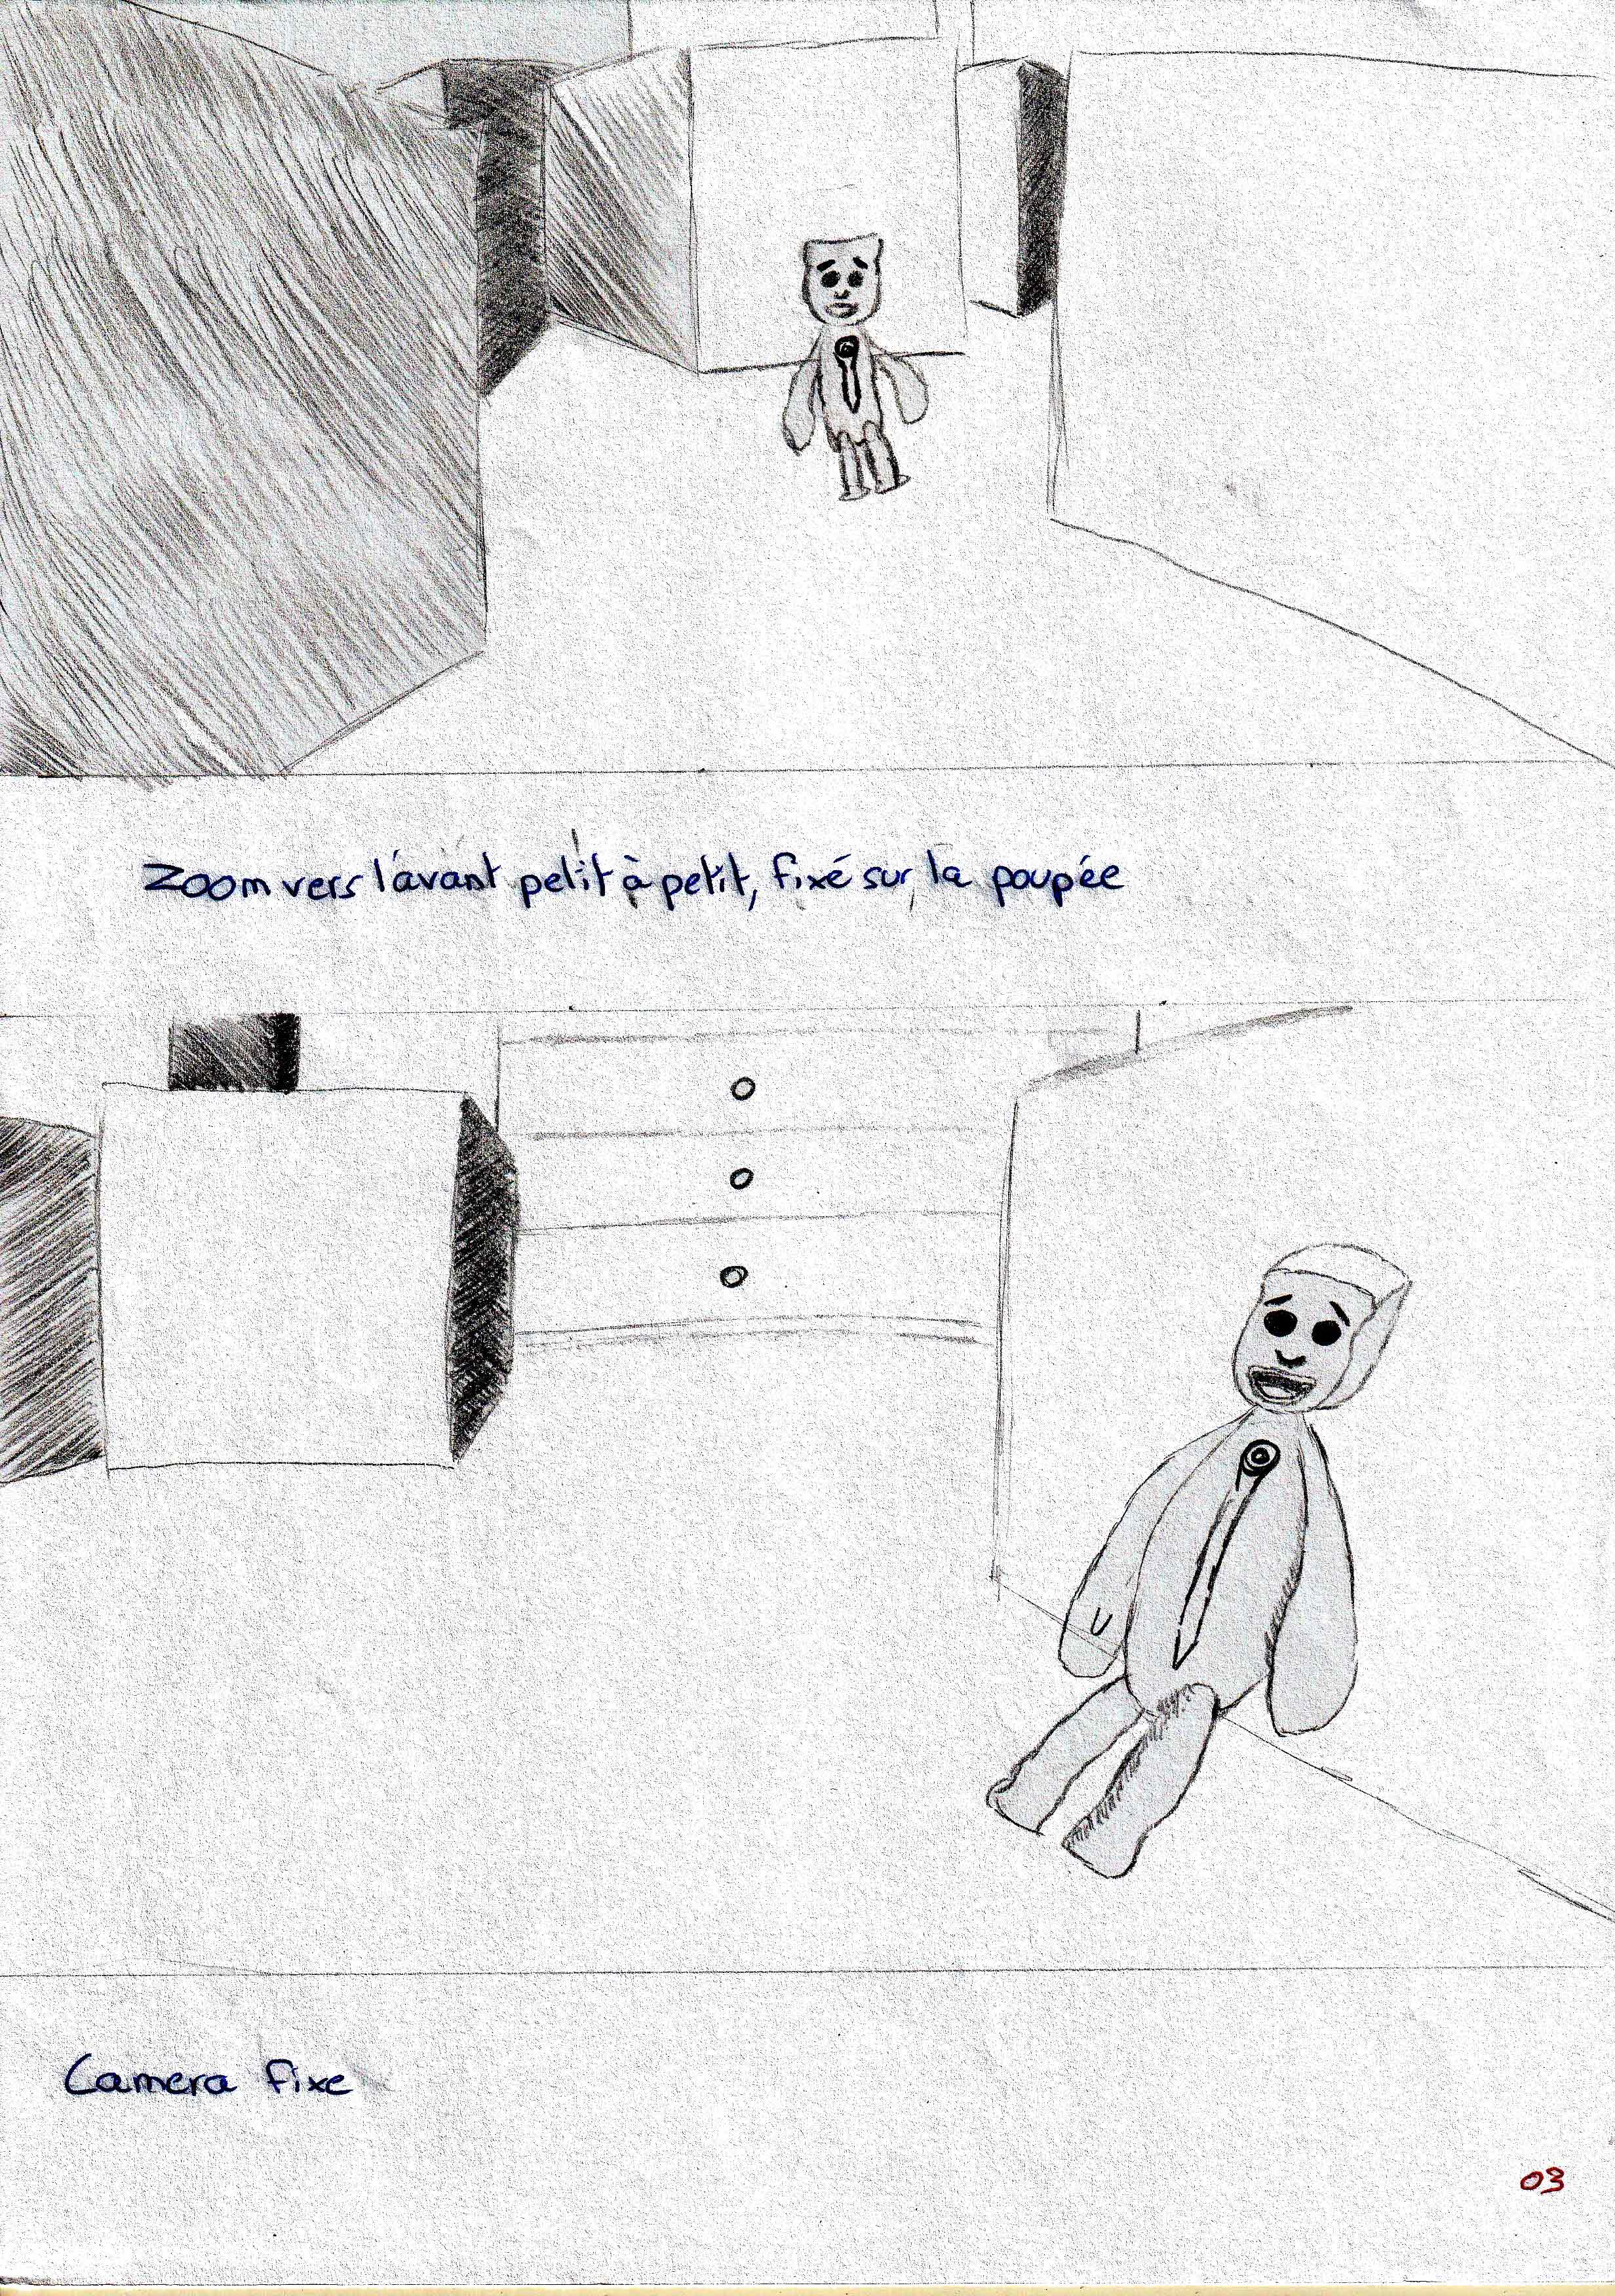 Zoom vers l'avant petit à petit, fixé sur la poupée
Camera fixe
03